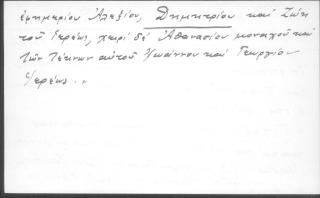 ἐφημερίου Ἀλεξίου, Δημητρίου καὶ Ζώη
τοῦ Ἱερέως, χειρὶ δὲ Ἀθανασίου μοναχοῦ καὶ
τῶν τέκνων αὐτοῦ Ἰωάννου καὶ Γεωργίου
ἱερέως..